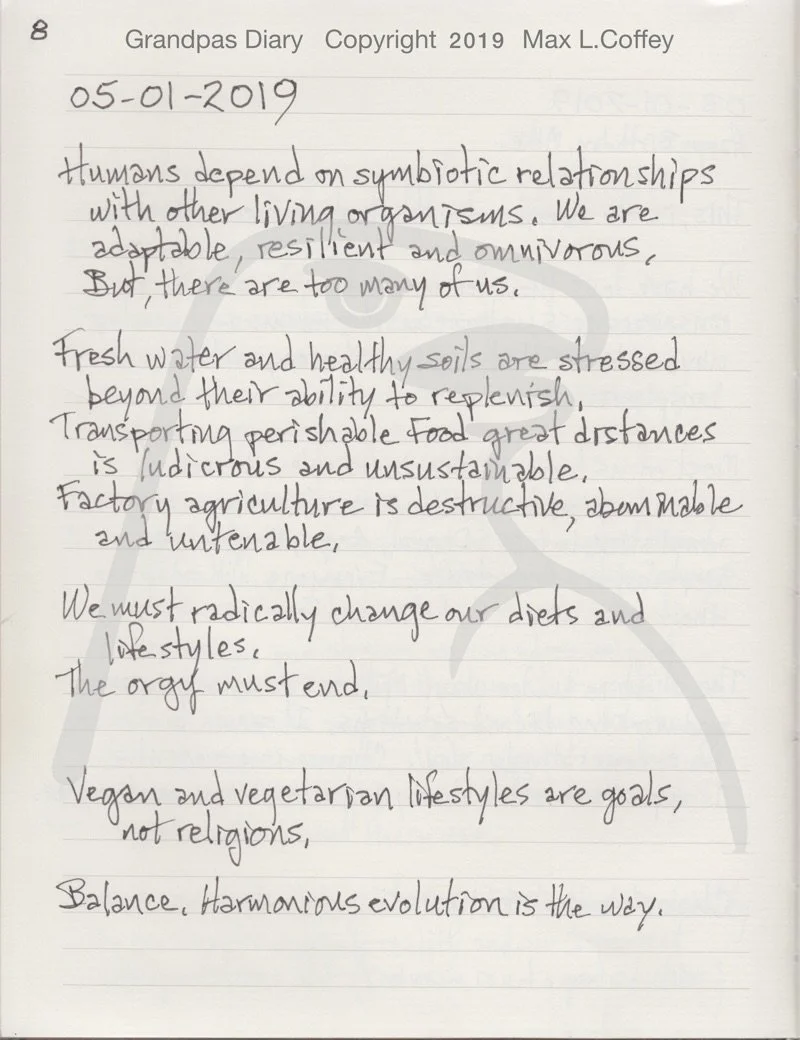 8
Grandpas Diary Copyright 2019 Max L.Coffey
05-01-2019
Humans depend on symbiotic relationships
with other living organisms. We are
adaptable, resilient and omnivorous,
But, there are too many of us.
Fresh water and healthy soils are stressed
beyond their ability to replenish.
Transporting perishable Food great distances
is ludicrous and unsustainable.
Factory agriculture is destructive, abominable
and untenable.
We must radically change our diets and
lifestyles.
The orgy must end.
Vegan and vegetarian lifestyles are goals,
not religions.
Balance. Harmonious evolution is the way.